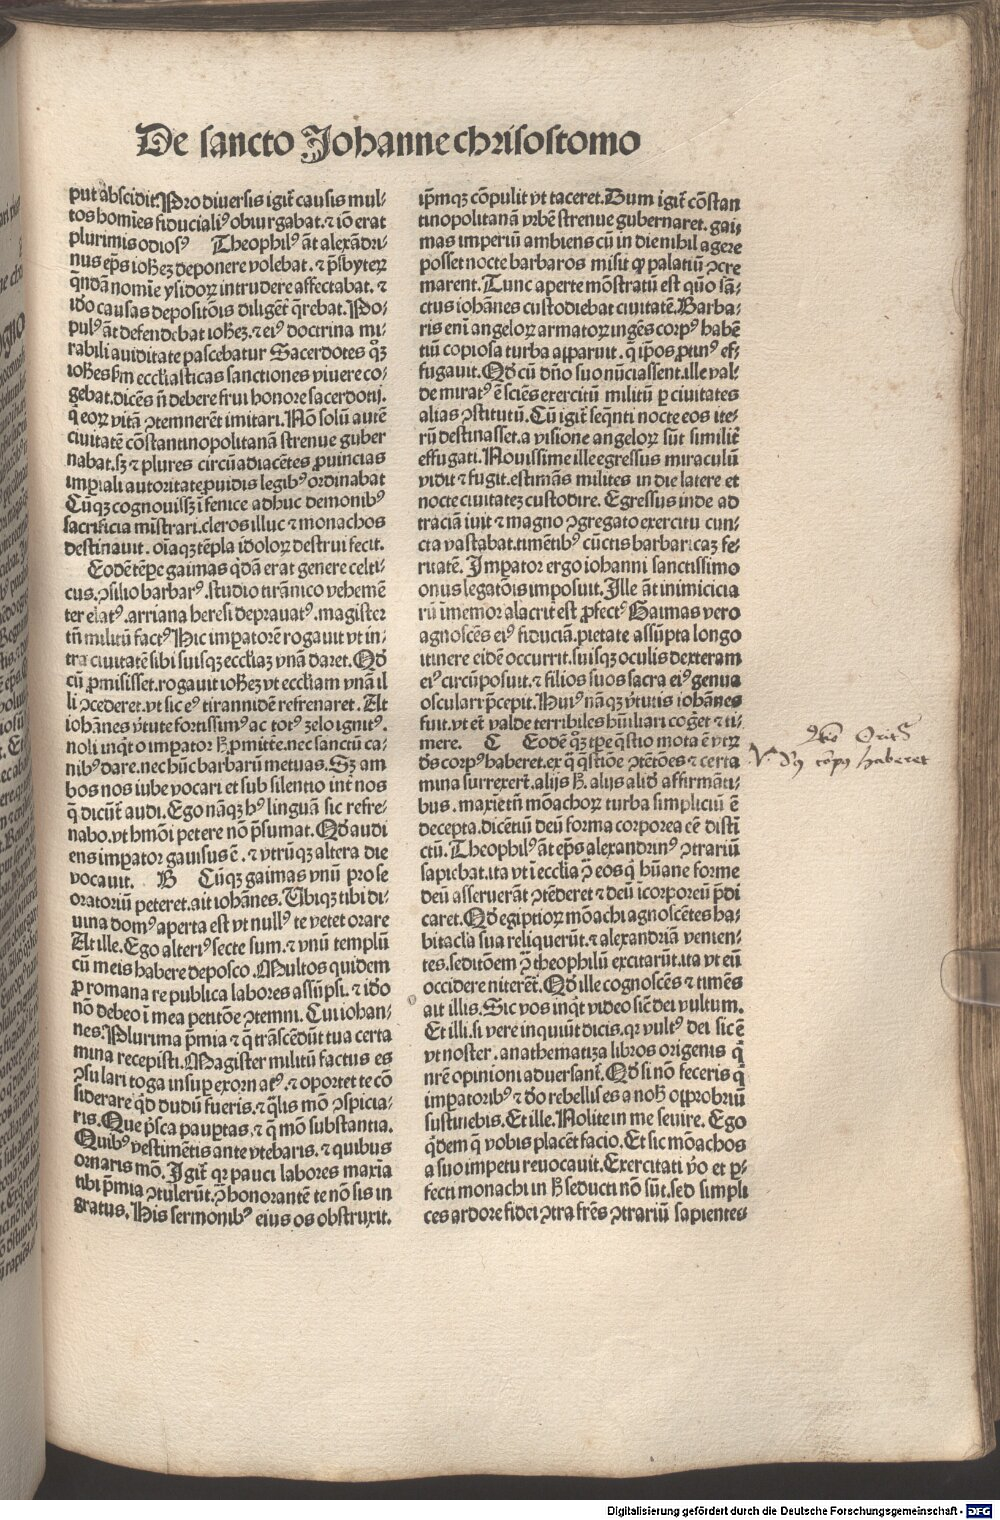 De sancto Johanne chrisostomo
put abscidit. Pro diversis igit᷑ causis mul⸗
tos homīes fiduciali⁹ obiurgabat. ⁊ iō erat
plurimis odios⁹ Theophil⁹ āt alexādri⸗
nus ep̄s ioh̄ez deponere volebat. ⁊ p̄sbyteꝝ
q̄ndā nomīe ysidoꝝ intrudere affectabat. ⁊
iđo causas depositōis diligēt᷑ q̄rebat. Po⸗
pul⁹ āt defendebat ioh̄ez. ⁊ ei⁹ doctrina mi⸗
rabili auiditate pascebatur Sacerdotes qͦꝫ
ioh̄es ẜm ecclīasticas sanctiones viuere co⸗
gebat. dicēs n̄ debere frui honore sacerdotij.
q̄ eoꝝ vitā ꝯtemnerēt imitari. Nō solū autē
ciuitatē cōstantinopolitanā strenue guber
nabat. sꝫ ⁊ plures circūadiacētes ꝓuincias
imꝑiali autoritate ꝓuidis legib⁹ ordinabat
Cūqꝫ cognouissꝫ ī fenice adhuc demonib⁹
sacrificia mīstrari. cleros illuc ⁊ monachos
destinauit. oīaqꝫ tēpla idoloꝝ destrui fecit.
Eodē tēꝑe gaimas q̇dā erat genere celti⸗
cus. ꝯsilio barbar⁹. studio tirānico vehemē
ter elat⁹. arriana heresi deprauat⁹. magister
tn̄ militū fact⁹ Hic imꝑatorē rogauit vt in⸗
tra ciuitatē sibi suisqꝫ ecclīaꝫ vnā daret. Qđ
cū ꝓmisisset. rogauit ioh̄ez vt ecclīam vnā il
li ꝯcederet. vt sic ei⁹ tirannidē refrenaret. At
iohānes v̄tute fortissim⁹ ac tot⁹ zelo ignit⁹.
noli inqͥt o imꝑator h̄ ꝓmittē. nec sanctū ca⸗
nib⁹ dare. nec hūc barbarū metuas. Sꝫ am
bos nos iube vocari et sub silentio int̄ nos
q̄ dicūt᷑ audi. Ego nāqꝫ h⁹ linguā sic refre⸗
nabo. vt hmōi petere nō p̄sumat. Qđ audi
ens imꝑator gauisus ē. ⁊ vtrūqꝫ altera die
vocauit. B Cūqꝫ gaimas vnū pro se
oratoriū peteret. ait iohānes. Ubiqꝫ tibi di⸗
uina dom⁹ aperta est vt null⁹ te vetet orare
At ille. Ego alteri⁹ secte sum. ⁊ vnū templū
cū meis habere deposco. Multos quidem
ꝓ romana re publica labores assūpsi. ⁊ iđo
nō debeo ī mea petitōe ꝯtemni. Cui iohan⸗
nes. Plurima p̄mia ⁊ q̄ trāscēdūt tua certa
mina recepisti. Magister militū factus es
ꝯsulari toga insuꝑ exornat⁹. ⁊ oportet te cō
siderare qͥd dudū fueris. ⁊ q̄lis mō ꝯspicia⸗
ris. Que p̄sca pauꝑtas. ⁊ q̄ mō substantia.
Quib⁹ vestimētis ante vtebaris. ⁊ quibus
ornaris mō. Igit᷑ qꝛ pauci labores maxīa
tibi p̄mia ꝯtulerūt. ꝯ̄ honorantē te nō sis in
gratus. His sermonib⁹ eius os obstruxit.
ip̄mqꝫ cōpulit vt taceret. Dum igit᷑ cōstan
tinopolitanā vrbē strenue gubernaret. gai⸗
mas imperiū ambiens cū in die nihil agere
posset nocte barbaros misit qͥ palatiū ꝯcre
marent. Tunc aperte mōstratū est qūo sā⸗
ctus iohānes custodiebat ciuitatē. Barba⸗
ris eni angeloꝝ armatoꝝ ingēs corp⁹ habē
tiū copiosa turba apparuit. q̄ ip̄os ꝓtin⁹ ef⸗
fugauit. Qđ cū dn̄o suo nūciassent. ille val⸗
de mirat⁹ ē sciēs exercitū militū ꝑ ciuitates
alias ꝯstitutū. Cū igit᷑ seq̄nti nocte eos ite⸗
rū destinasset. a visione angeloꝝ sūt similit᷑
effugati. Nouissime ille egressus miraculū
vidit ⁊ fugit. estimās milites in die latere et
nocte ciuitatez custodire. Egressus inde ad
traciā iuit ⁊ magno ꝯgregato exercitu cun⸗
cta vastabat. timētib⁹ cūctis barbaricaꝫ fe⸗
ritatē. Imꝑator ergo iohanni sanctissimo
onus legatōis imposuit. Ille āt inimicicia
rū īmemor alacrit᷑ est ꝓfect⁹ Gaimas vero
agnoscēs ei⁹ fiduciā. pietate assūpta longo
itinere eidē occurrit. suisqꝫ oculis dexteram
ei⁹ circūposuit. ⁊ filios suos sacra ei⁹ genua
osculari p̄cepit. Hui⁹ nāqꝫ v̄tutis iohānes
fuit. vt et᷑ valde terribiles hūiliari cog̃et ⁊ ti⸗
mere. C Eodē qͦꝫ tꝑe q̄stio mota ē vtꝝ
đs corp⁹ haberet. ex q̄ q̄stiōe ꝯtētōes ⁊ certa
mina surrexer̄t. alijs h̄. alijs aliđ affirmāti⸗
bus. maxīetn̄ mōachoꝝ turba simpliciū ē
decepta. dicētiū deū forma corporea eē distī
ctū. Theophil⁹ āt ep̄s alexandrin⁹ ꝯtrariū
sapiebat. ita vt ī ecclīa ꝯ̄ eos q̄ hūane forme
deū asseruerāt ꝯtēderet ⁊ deū īcorporeū p̄di
caret. Qđ egiptioꝝ mōachi agnoscētes ha⸗
bitacl̄a sua reliquerūt. ⁊ alexandriā venien⸗
tes. seditōem ꝯ̄ theophilū excitarūt. ita vt eū
occidere niterēt᷑. Qđ ille cognoscēs ⁊ timēs
ait illis. Sic vos inqͥt video sic̄ dei vultum.
Et illi. si vere inquiūt dicis. qꝛ vult⁹ dei sic̄ ē
vt noster. anathematiza libros origenis q̄
nr̄e opinioni aduersant᷑. Qđ si nō feceris q̄
imꝑatorib⁹ ⁊ đo rebellis es a nob̄ opprobriū
sustinebis. Et ille. Nolite in me seuire. Ego
q̇dem q̄ vobis placēt facio. Et sic mōachos
a suo impetu reuocauit. Exercitati v̄o et ꝑ⸗
fecti monachi in h̄ seducti nō sūt. sed simpli
ces ardore fidei ꝯtra fr̄es ꝯtrariū sapientes
haberet
Digitalisierung gefördert durch die Deutsche Forschungsgemeinschaft - DFG